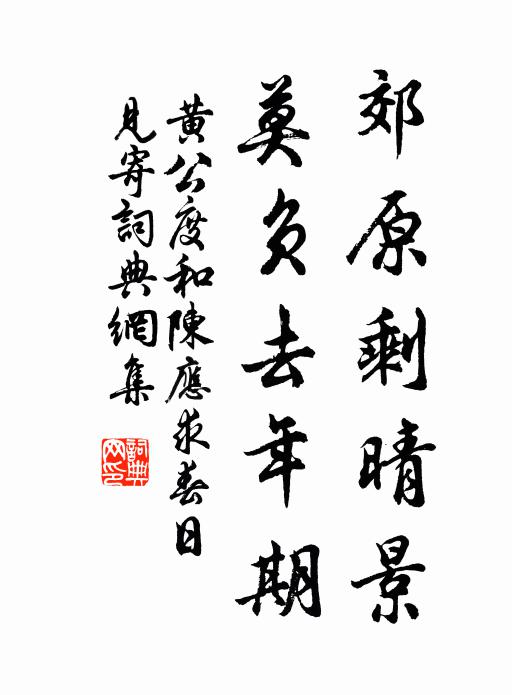 郊原剩晴景
莫負去年期
黄公度和陳應求春日
見寄詞典網集
詞典网印